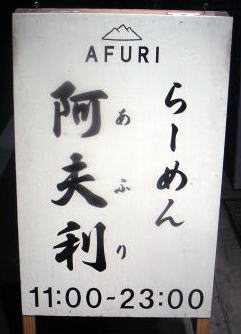 AFURI
らーめん
阿夫利
あふり
11:00~23:00